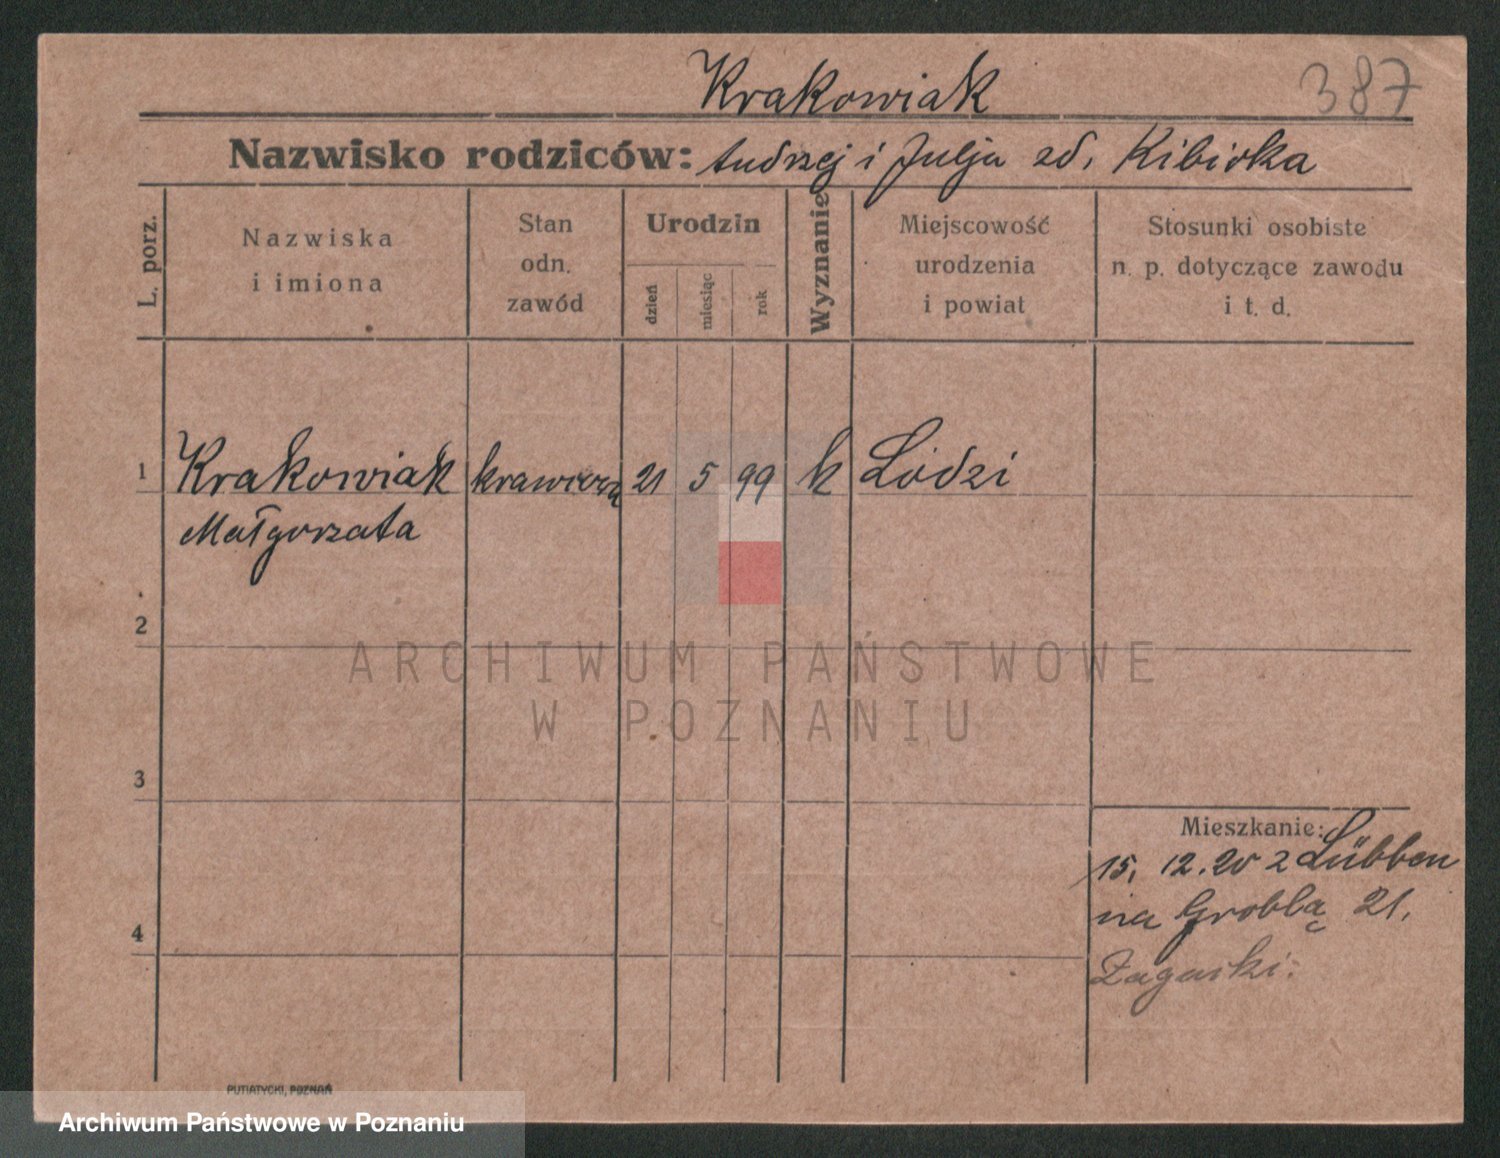 Krakowiak 387
Nazwisko rodziców: Andrzej i Julja zd. Kibirka
L. porz.
Nazwiska
i imiona
Stan
odn.
zawód
Urodzin
dzień
miesiąc
rok
Wyznanie
Miejscowość
urodzenia
i powiat
Stosunki osobiste
n. p. dotyczące zawodu
i t. d.
1 Krakowiak krawcza 21 5 99 k Łódzi
Małgorzata
2
ARCHIWUM PAŃSTWOWE
W POZNANIU
3
Mieszkanie:
15. 12. 20 z Lübben
na Groblą 21.
4
Zagaski.
PUTIATYCKI, POZNAŃ
Archiwum Państwowe w Poznaniu